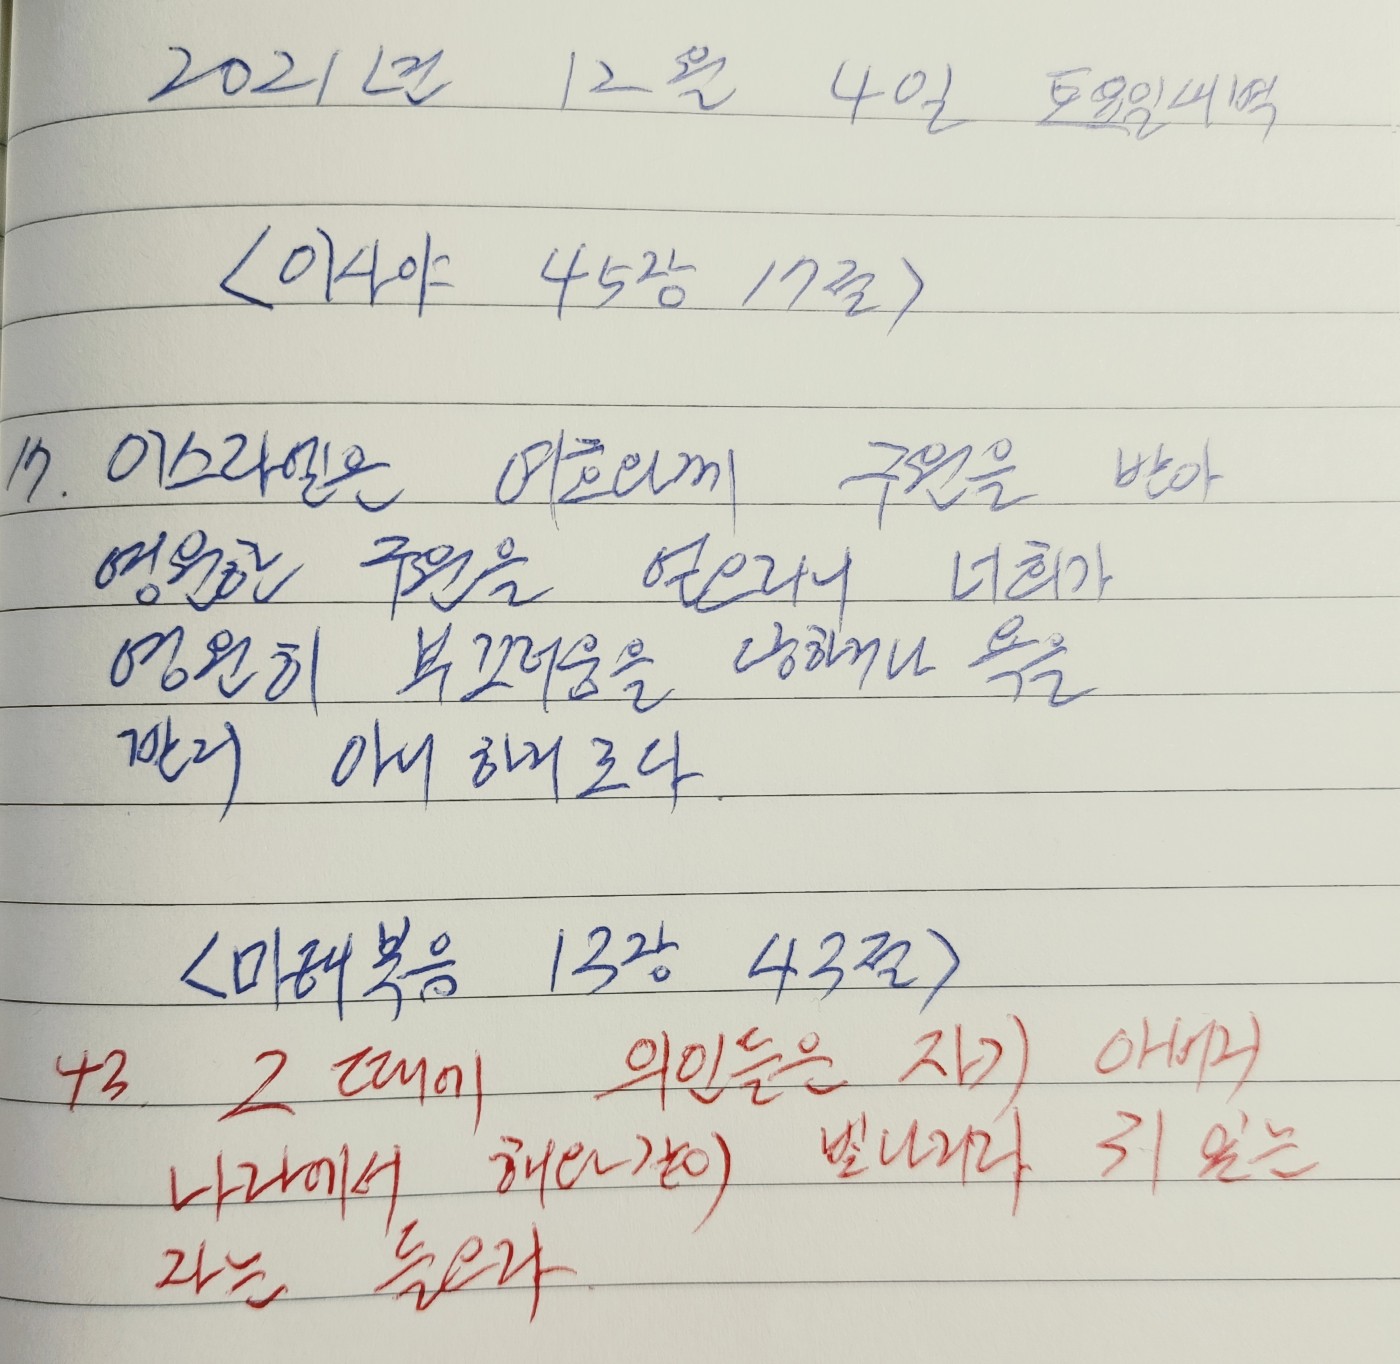 2021년 12월 4일 토요일새벽
<이사야 45장 17절>
17. 이스라엘은 여호와께 구원을 받아
영원한 구원을 얻으리니 너희가
영원히 부끄러움을 당하거나 욕을
받지 아니하리로다.
<마태복음 13장 43절>
43. 그 때에 의인들은 자기 아버지
나라에서 해와 같이 빛나리라 귀 있는
자는 들으라